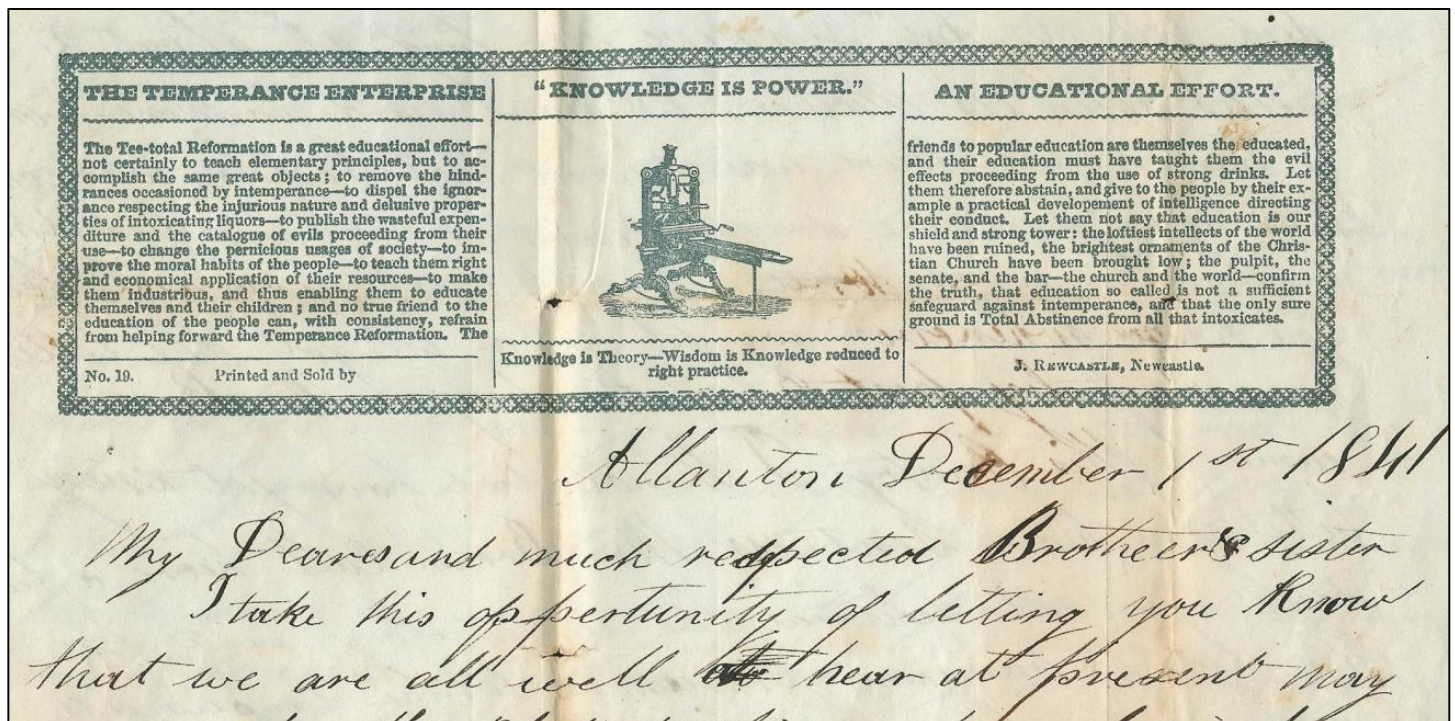 THE TEMPERANCE ENTERPRISE
The Tee-total Reformation is a great educational effort—
not certainly to teach elementary principles, but to ac-
complish the same great objects; to remove the hind-
rances occasioned by intemperance—to dispel the ignor-
ance respecting the injurious nature and delusive proper-
ties of intoxicating liquors—to publish the wasteful expen-
diture and the catalogue of evils proceeding from their
use—to change the pernicious usages of society—to im-
prove the moral habits of the people—to teach them right
and economical application of their resources—to make
them industrious, and thus enabling them to educate
themselves and their children; and no true friend to the
education of the people can, with consistency, refrain
from helping forward the Temperance Reformation. The
No. 19. Printed and Sold by
"KNOWLEDGE IS POWER."
Knowledge is Theory—Wisdom is Knowledge reduced to
right practice.
AN EDUCATIONAL EFFORT.
friends to popular education are themselves the educated,
and their education must have taught them the evil
effects proceeding from the use of strong drinks. Let
them therefore abstain, and give to the people by their ex-
ample a practical developement of intelligence directing
their conduct. Let them not say that education is our
shield and strong tower: the loftiest intellects of the world
have been ruined, the brightest ornaments of the Chris-
tian Church have been brought low; the pulpit, the
senate, and the bar—the church and the world—confirm
the truth, that education so called is not a sufficient
safeguard against intemperance, and that the only sure
ground is Total Abstinence from all that intoxicates.
J. REWCASTLE, Newcastle.
Allanton December 1st 1841
My Deares and much respected Brotheer & sister
I take this oppertunity of letting you Know
that we are all well hear at present may